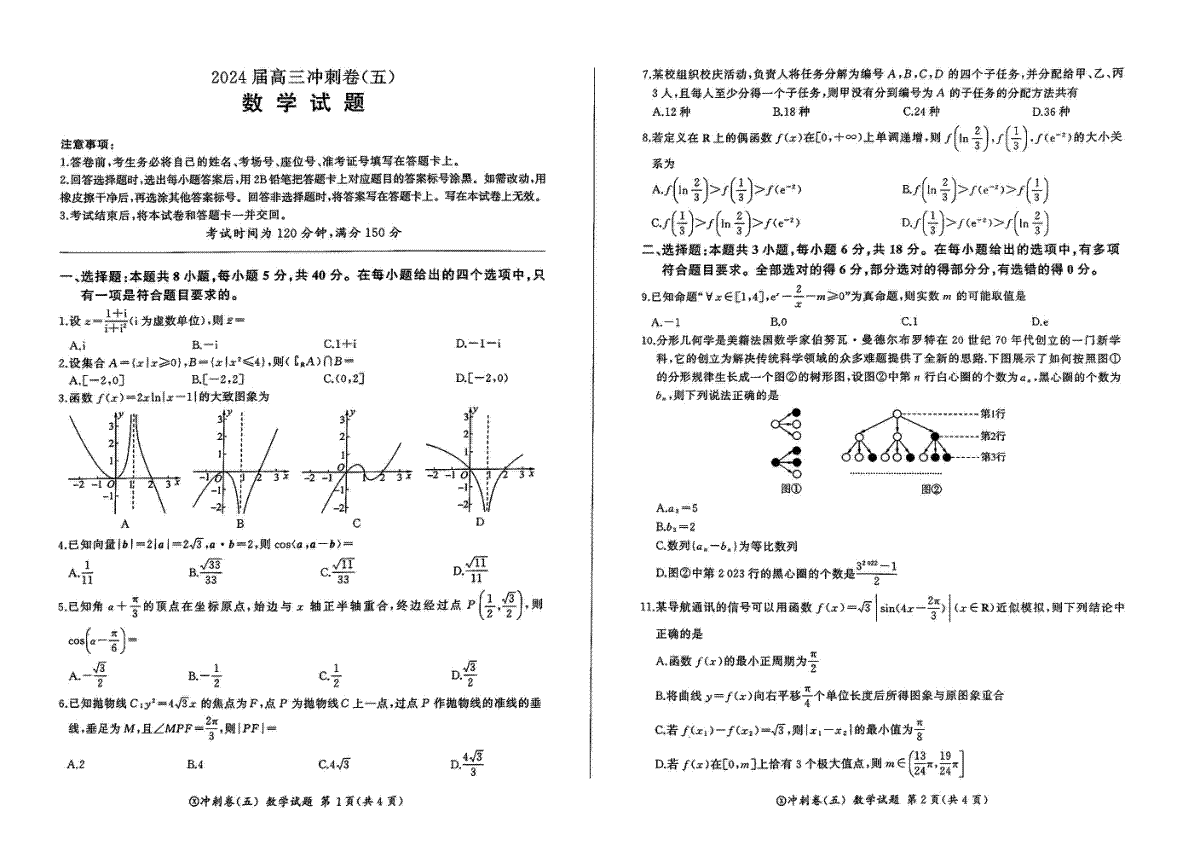 2024 届高三冲刺卷(五)
数 学 试 题
注意事项:
1.答卷前,考生务必将自己的姓名、考场号、座位号、准考证号填写在答题卡上。
2.回答选择题时,选出每小题答案后,用 2B 铅笔把答题卡上对应题目的答案标号涂黑。如需改动,用
橡皮擦干净后,再选涂其他答案标号。 回答非选择题时,将答案写在答题卡上。写在本试卷上无效。
3.考试结束后,将本试卷和答题卡一并交回。
考试时间为 120 分钟,满分 150 分
一、选择题:本题共 8 小题,每小题 5 分,共 40 分。在每小题给出的四个选项中,只
有一项是符合题目要求的。
1.设 z=(1+i)/(i+i²)(i 为虚数单位),则 z̄=
A.i B.-i C.1+i D.-1-i
2.设集合 A={x|x≥0},B={x|x²≤4},则(∁RA)∩B=
A.[-2,0] B.[-2,2] C.(0,2] D.[-2,0)
3.函数 f(x)=2xln|x-1|的大致图象为
A B C D
4.已知向量|b|=2|a|=2√3,a·b=2,则 cos⟨a,a-b⟩=
A.1/11 B.√33/33 C.√11/33 D.√11/11
5.已知角 α+π/3 的顶点在坐标原点,始边与 x 轴正半轴重合,终边经过点 P(1/2,√3/2),则
cos(α-π/6)=
A.-√3/2 B.-1/2 C.1/2 D.√3/2
6.已知抛物线 C:y²=4√3x 的焦点为 F,点 P 为抛物线 C 上一点,过点 P 作抛物线的准线的垂
线,垂足为 M,且∠MPF=2π/3,则|PF|=
A.2 B.4 C.4√3 D.4√3/3
冲刺卷(五) 数学试题 第 1 页(共 4 页)
7.某校组织校庆活动,负责人将任务分解为编号 A,B,C,D 的四个子任务,并分配给甲、乙、丙
3 人,且每人至少分得一个子任务,则甲没有分到编号为 A 的子任务的分配方法共有
A.12 种 B.18 种 C.24 种 D.36 种
8.若定义在 R 上的偶函数 f(x)在[0,+∞)上单调递增,则 f(ln 2/3),f(1/3),f(e⁻²)的大小关
系为
A.f(ln 2/3)>f(1/3)>f(e⁻²) B.f(ln 2/3)>f(e⁻²)>f(1/3)
C.f(1/3)>f(ln 2/3)>f(e⁻²) D.f(1/3)>f(e⁻²)>f(ln 2/3)
二、选择题:本题共 3 小题,每小题 6 分,共 18 分。在每小题给出的选项中,有多项
符合题目要求。全部选对的得 6 分,部分选对的得部分分,有选错的得 0 分。
9.已知命题“∀x∈[1,4],eˣ-2/x-m≥0”为真命题,则实数 m 的可能取值是
A.-1 B.0 C.1 D.e
10.分形几何学是美籍法国数学家伯努瓦·曼德尔布罗特在 20 世纪 70 年代创立的一门新学
科,它的创立为解决传统科学领域的众多难题提供了全新的思路.下图展示了如何按照图①
的分形规律生长成一个图②的树形图,设图②中第 n 行白心圈的个数为 aₙ,黑心圈的个数为
bₙ,则下列说法正确的是
第1行
第2行
第3行
图① 图②
A.a₃=5
B.b₃=2
C.数列{aₙ-bₙ}为等比数列
D.图②中第 2 023 行的黑心圈的个数是(3^(2 022)-1)/2
11.某导航通讯的信号可以用函数 f(x)=√3|sin(4x-2π/3)|(x∈R)近似模拟,则下列结论中
正确的是
A.函数 f(x)的最小正周期为π/2
B.将曲线 y=f(x)向右平移π/4个单位长度后所得图象与原图象重合
C.若 f(x₁)-f(x₂)=√3,则|x₁-x₂|的最小值为π/8
D.若 f(x)在[0,m]上恰有 3 个极大值点,则 m∈(13/24π,19/24π]
冲刺卷(五) 数学试题 第 2 页(共 4 页)